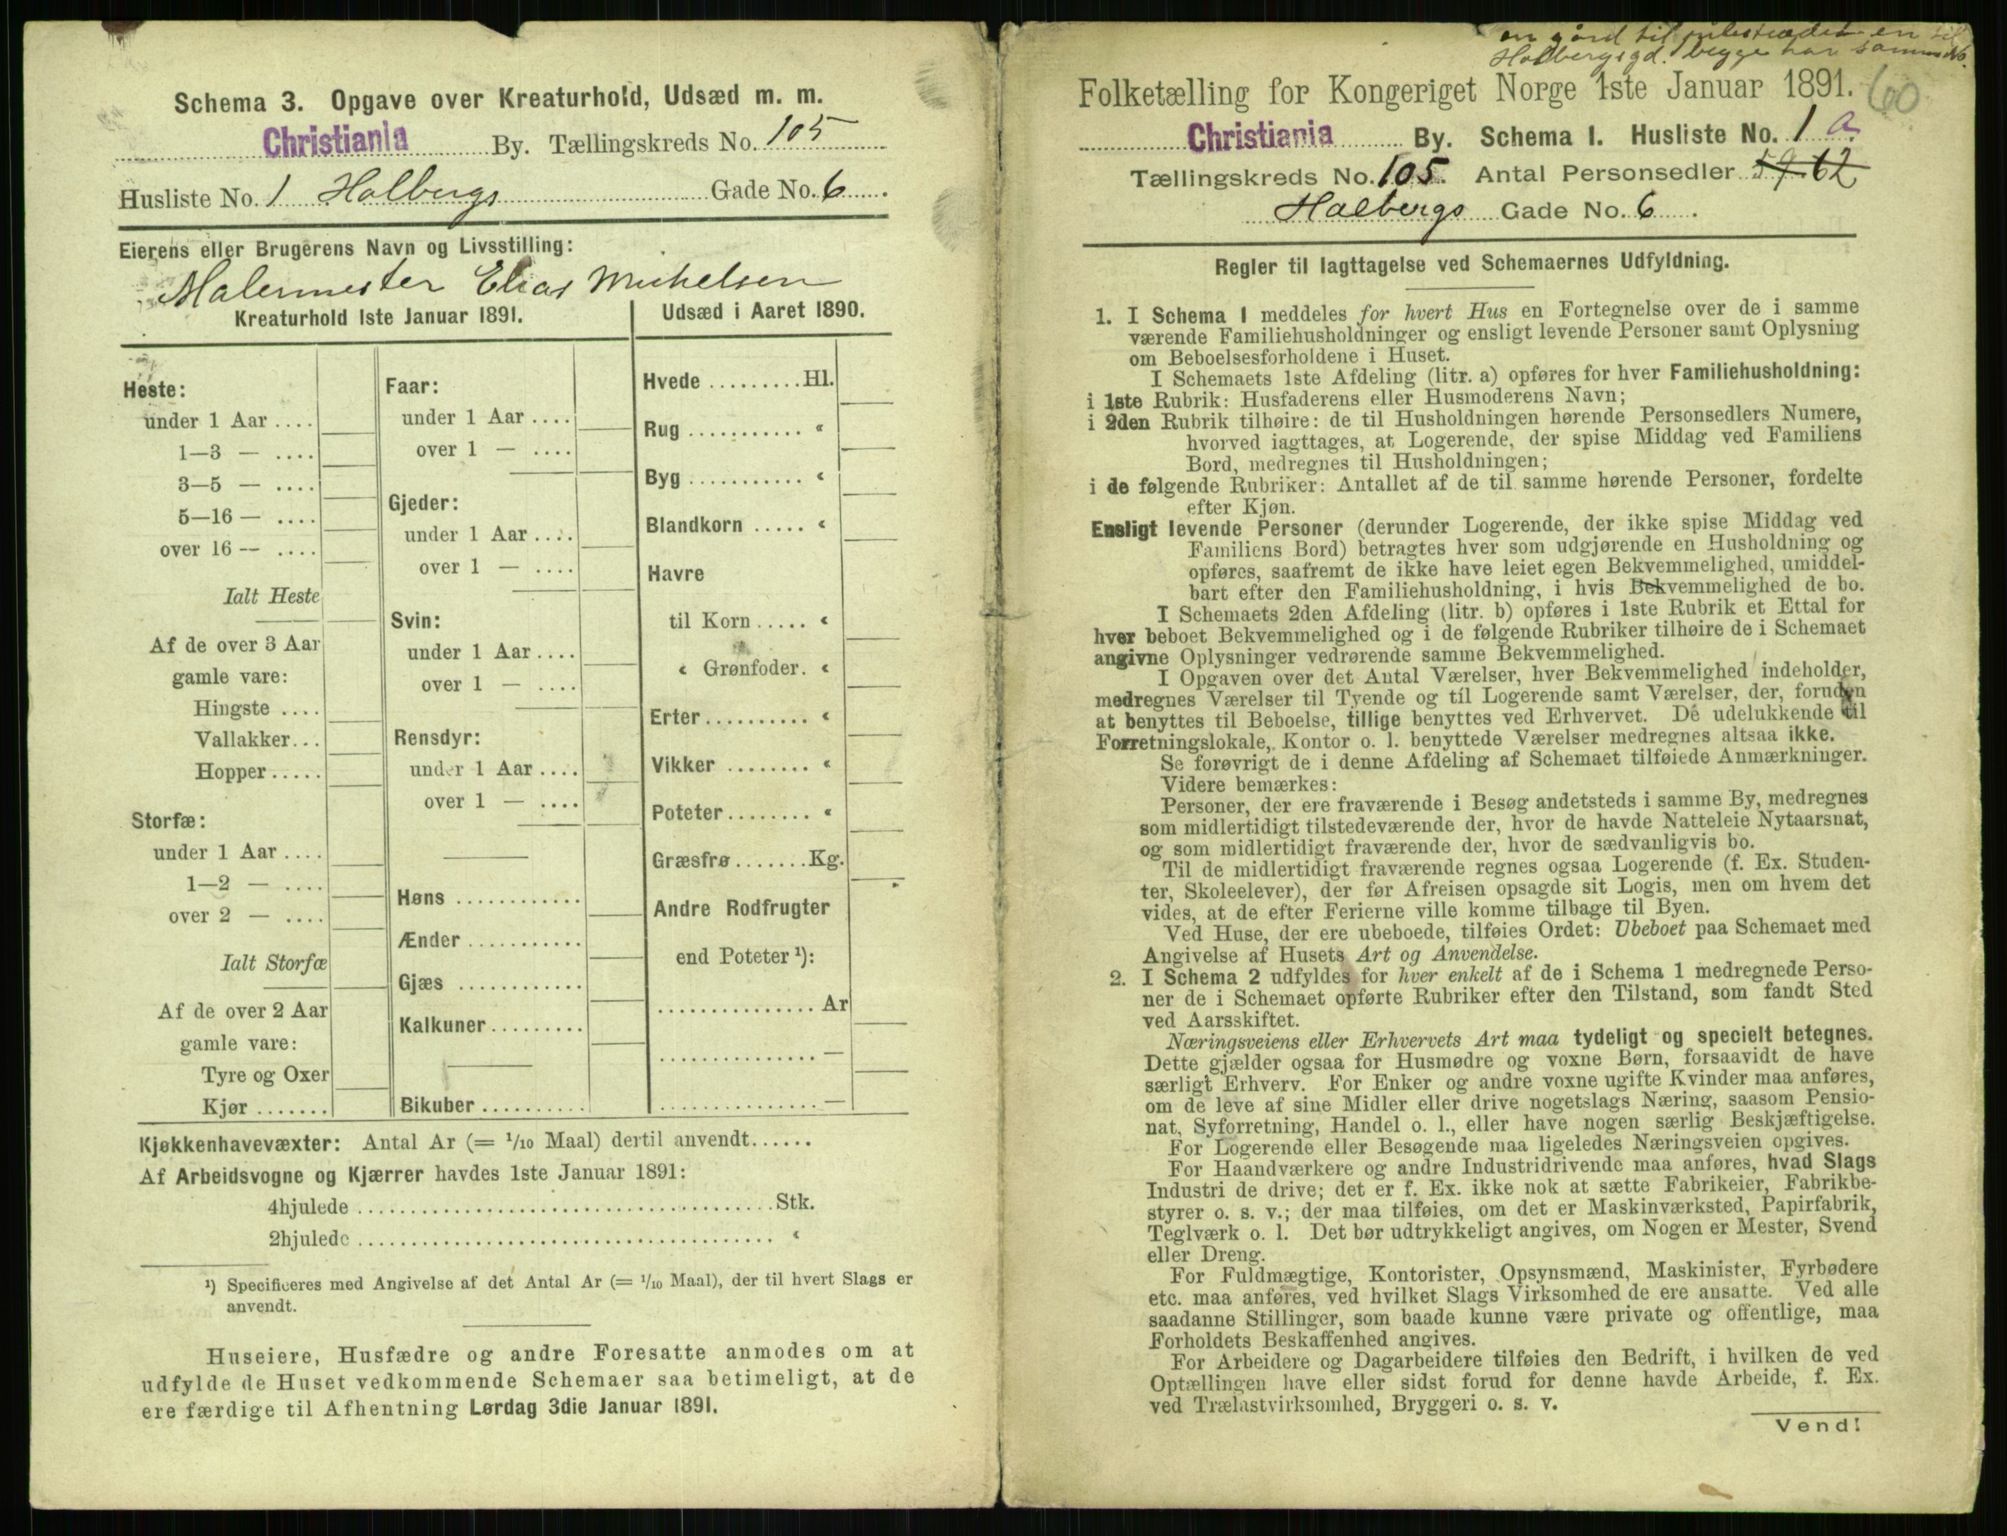 Schema 3. Opgave over Kreaturhold, Udsæd m. m.
Christiania By. Tællingskreds No. 105
Husliste No. 1 Holbergs Gade No. 6.
Eierens eller Brugerens Navn og Livsstilling:
Malermester Elias Michelsen
Kreaturhold 1ste Januar 1891.
Heste:
under 1 Aar ....
1—3 — ....
3—5 — ....
5—16 — ....
over 16 — ....
Ialt Heste
Af de over 3 Aar
gamle vare:
Hingste ....
Vallakker...
Hopper.....
Storfæ:
under 1 Aar ....
1—2 — ....
over 2 — ....
Ialt Storfæ
Af de over 2 Aar
gamle vare:
Tyre og Oxer
Kjør .......
Faar:
under 1 Aar ....
over 1 — ....
Gjeder:
under 1 Aar ....
over 1 — ....
Svin:
under 1 Aar ....
over 1 — ....
Rensdyr:
under 1 Aar ....
over 1 — ....
Høns ............
Ænder ...........
Gjæs ............
Kalkuner.........
Bikuber ..........
Udsæd i Aaret 1890.
Hvede .........Hl.
Rug ........... «
Byg ........... «
Blandkorn ..... «
Havre
til Korn ..... «
« Grønfoder. «
Erter.......... «
Vikker ........ «
Poteter........ «
Græsfrø .......Kg.
Andre Rodfrugter
end Poteter ¹):
............... Ar
............... —
............... —
Kjøkkenhavevæxter: Antal Ar (= 1/10 Maal) dertil anvendt......
Af Arbeidsvogne og Kjærrer havdes 1ste Januar 1891:
4hjulede ..................................... Stk.
2hjulede ..................................... «
¹) Specificeres med Angivelse af det Antal Ar (= 1/10 Maal), der til hvert Slags er
anvendt.
Huseiere, Husfædre og andre Foresatte anmodes om at
udfylde de Huset vedkommende Schemaer saa betimeligt, at de
ere færdige til Afhentning Lørdag 3die Januar 1891.
en gård til en til
Holbergsgd. begge har samme No.
Folketælling for Kongeriget Norge 1ste Januar 1891. 60
Christiania By. Schema I. Husliste No. 1 a
Tællingskreds No. 105. Antal Personsedler 59 62
Holbergs Gade No. 6.
Regler til Iagttagelse ved Schemaernes Udfyldning.
1. I Schema 1 meddeles for hvert Hus en Fortegnelse over de i samme
værende Familiehusholdninger og ensligt levende Personer samt Oplysning
om Beboelsesforholdene i Huset.
I Schemaets 1ste Afdeling (litr. a) opføres for hver Familiehusholdning:
i 1ste Rubrik: Husfaderens eller Husmoderens Navn;
i 2den Rubrik tilhøire: de til Husholdningen hørende Personsedlers Numere,
hvorved iagttages, at Logerende, der spise Middag ved Familiens
Bord, medregnes til Husholdningen;
i de følgende Rubriker: Antallet af de til samme hørende Personer, fordelte
efter Kjøn.
Ensligt levende Personer (derunder Logerende, der ikke spise Middag ved
Familiens Bord) betragtes hver som udgjørende en Husholdning og
opføres, saafremt de ikke have leiet egen Bekvemmelighed, umiddel-
bart efter den Familiehusholdning, i hvis Bekvemmelighed de bo.
I Schemaets 2den Afdeling (litr. b) opføres i 1ste Rubrik et Ettal for
hver beboet Bekvemmelighed og i de følgende Rubriker tilhøire de i Schemaet
angivne Oplysninger vedrørende samme Bekvemmelighed.
I Opgaven over det Antal Værelser, hver Bekvemmelighed indeholder,
medregnes Værelser til Tyende og til Logerende samt Værelser, der, foruden
at benyttes til Beboelse, tillige benyttes ved Erhvervet. De udelukkende til
Forretningslokale, Kontor o. l. benyttede Værelser medregnes altsaa ikke.
Se forøvrigt de i denne Afdeling af Schemaet tilføiede Anmærkninger.
Videre bemærkes:
Personer, der ere fraværende i Besøg andetsteds i samme By, medregnes
som midlertidigt tilstedeværende der, hvor de havde Natteleie Nytaarsnat,
og som midlertidigt fraværende der, hvor de sædvanligvis bo.
Til de midlertidigt fraværende regnes ogsaa Logerende (f. Ex. Studen-
ter, Skoleelever), der før Afreisen opsagde sit Logis, men om hvem det
vides, at de efter Ferierne ville komme tilbage til Byen.
Ved Huse, der ere ubeboede, tilføies Ordet: Ubeboet paa Schemaet med
Angivelse af Husets Art og Anvendelse.
2. I Schema 2 udfyldes for hver enkelt af de i Schema 1 medregnede Perso-
ner de i Schemaet opførte Rubriker efter den Tilstand, som fandt Sted
ved Aarsskiftet.
Næringsveiens eller Erhvervets Art maa tydeligt og specielt betegnes.
Dette gjælder ogsaa for Husmødre og voxne Børn, forsaavidt de have
særligt Erhverv. For Enker og andre voxne ugifte Kvinder maa anføres,
om de leve af sine Midler eller drive nogetslags Næring, saasom Pensio-
nat, Syforretning, Handel o. l., eller have nogen særlig Beskjæftigelse.
For Logerende eller Besøgende maa ligeledes Næringsveien opgives.
For Haandværkere og andre Industridrivende maa anføres, hvad Slags
Industri de drive; det er f. Ex. ikke nok at sætte Fabrikeier, Fabrikbe-
styrer o. s. v.; der maa tilføies, om det er Maskinværksted, Papirfabrik,
Teglværk o. l. Det bør udtrykkeligt angives, om Nogen er Mester, Svend
eller Dreng.
For Fuldmægtige, Kontorister, Opsynsmænd, Maskinister, Fyrbødere
etc. maa anføres, ved hvilket Slags Virksomhed de ere ansatte. Ved alle
saadanne Stillinger, som baade kunne være private og offentlige, maa
Forholdets Beskaffenhed angives.
For Arbeidere og Dagarbeidere tilføies den Bedrift, i hvilken de ved
Optællingen have eller sidst forud for denne havde Arbeide, f. Ex.
ved Trælastvirksomhed, Bryggeri o. s. v.
Vend!